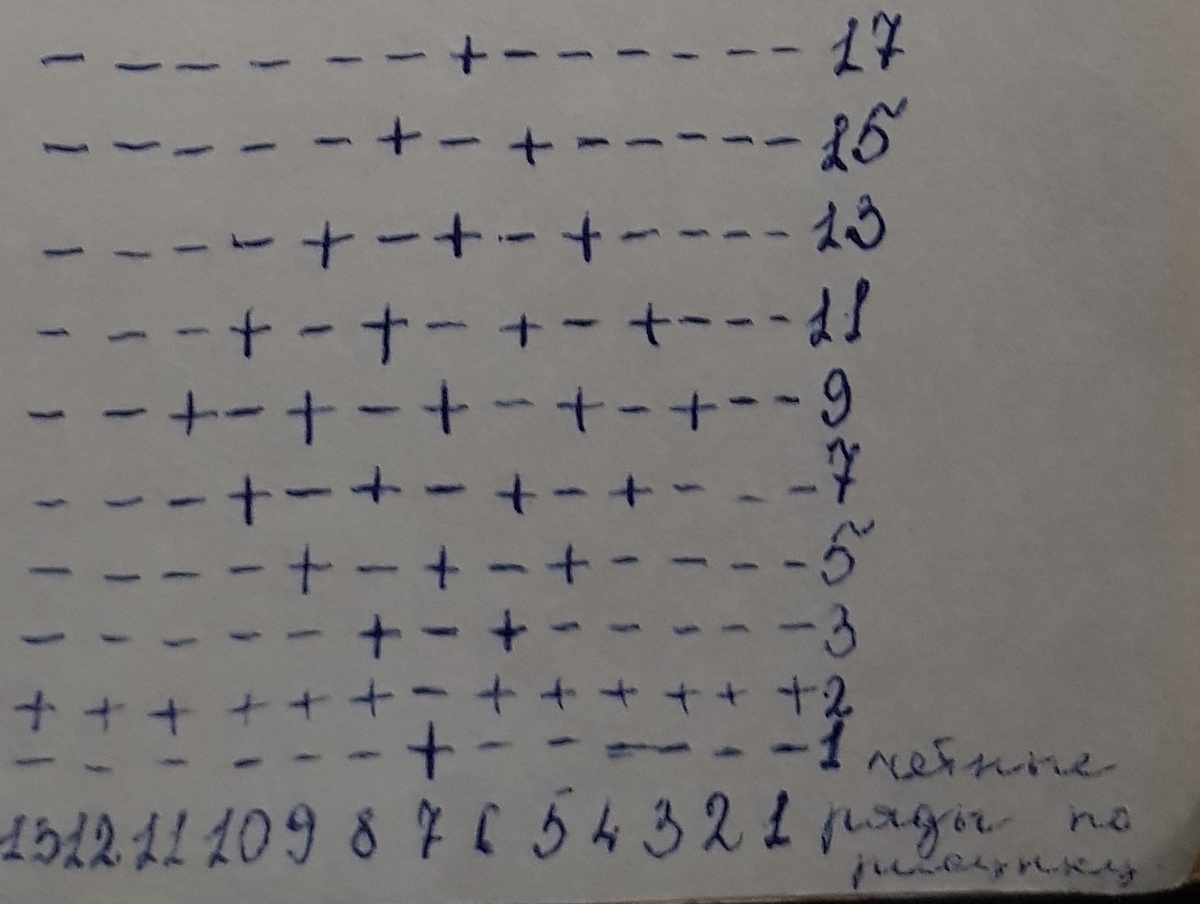 - - - - - - + - - - - - - 17
- - - - - + - + - - - - - 15
- - - - + - + - + - - - - 13
- - - + - + - + - + - - - 11
- - + - + - + - + - + - - 9
- - - + - + - + - + - - - 7
- - - - + - + - + - - - - 5
- - - - - + - + - - - - - 3
+ + + + + + - + + + + + + 2
- - - - - - + - - - - - - 1 четные
13 12 11 10 9 8 7 6 5 4 3 2 1 ряды по
рисунку